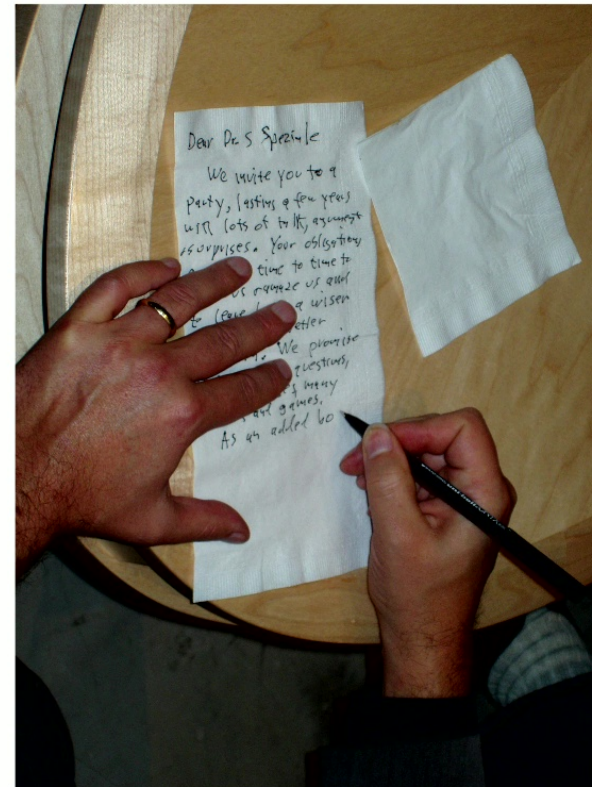 Dear Dr. S Speziale
We invite you to a
party, lasting a few years
with lots of talk, argument
surprises. Your obligation,
time to time to
us & amaze us and
to leave a wiser
We promise
questions,
many
and games.
As an added bo